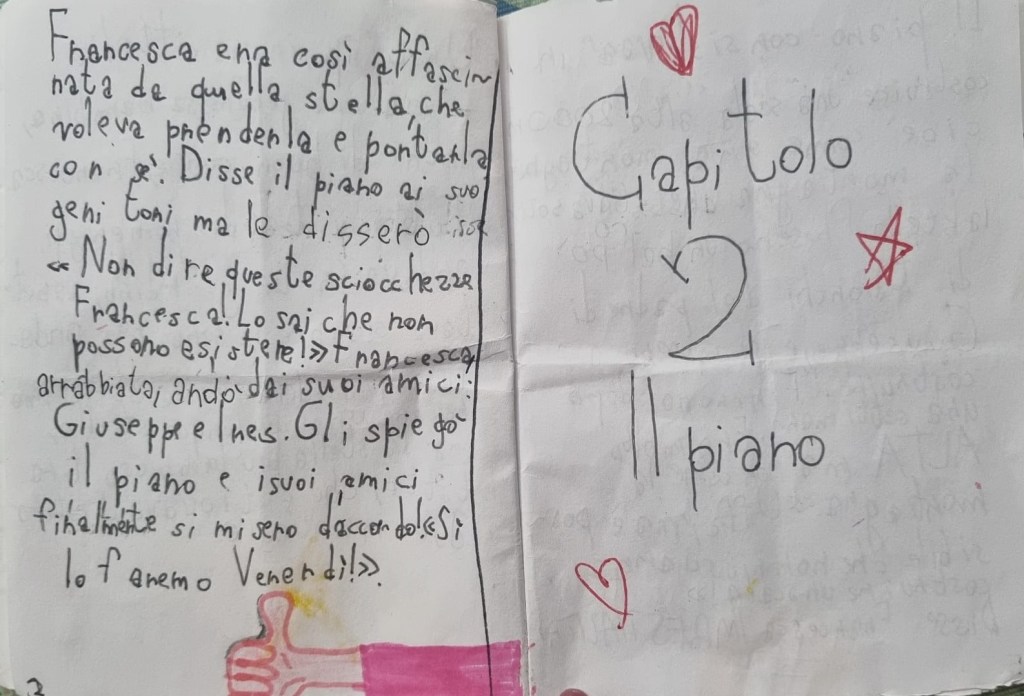 Francesca era così affascin
nata da quella stella, che
voleva prenderla e portarla
con sé. Disse il piano ai suo
geni tori ma le disserò
« Non dire queste sciocchezze
Francesca! Lo sai che non
possono esistere!» Francesca,
arrabbiata, andò dai suoi amici:
Giuseppe e Ines. Gli spiegò
il piano e i suoi amici
finalmente si misero d'accordo!«Si
lo faremo Venerdi!».
3
Capitolo
2
Il piano